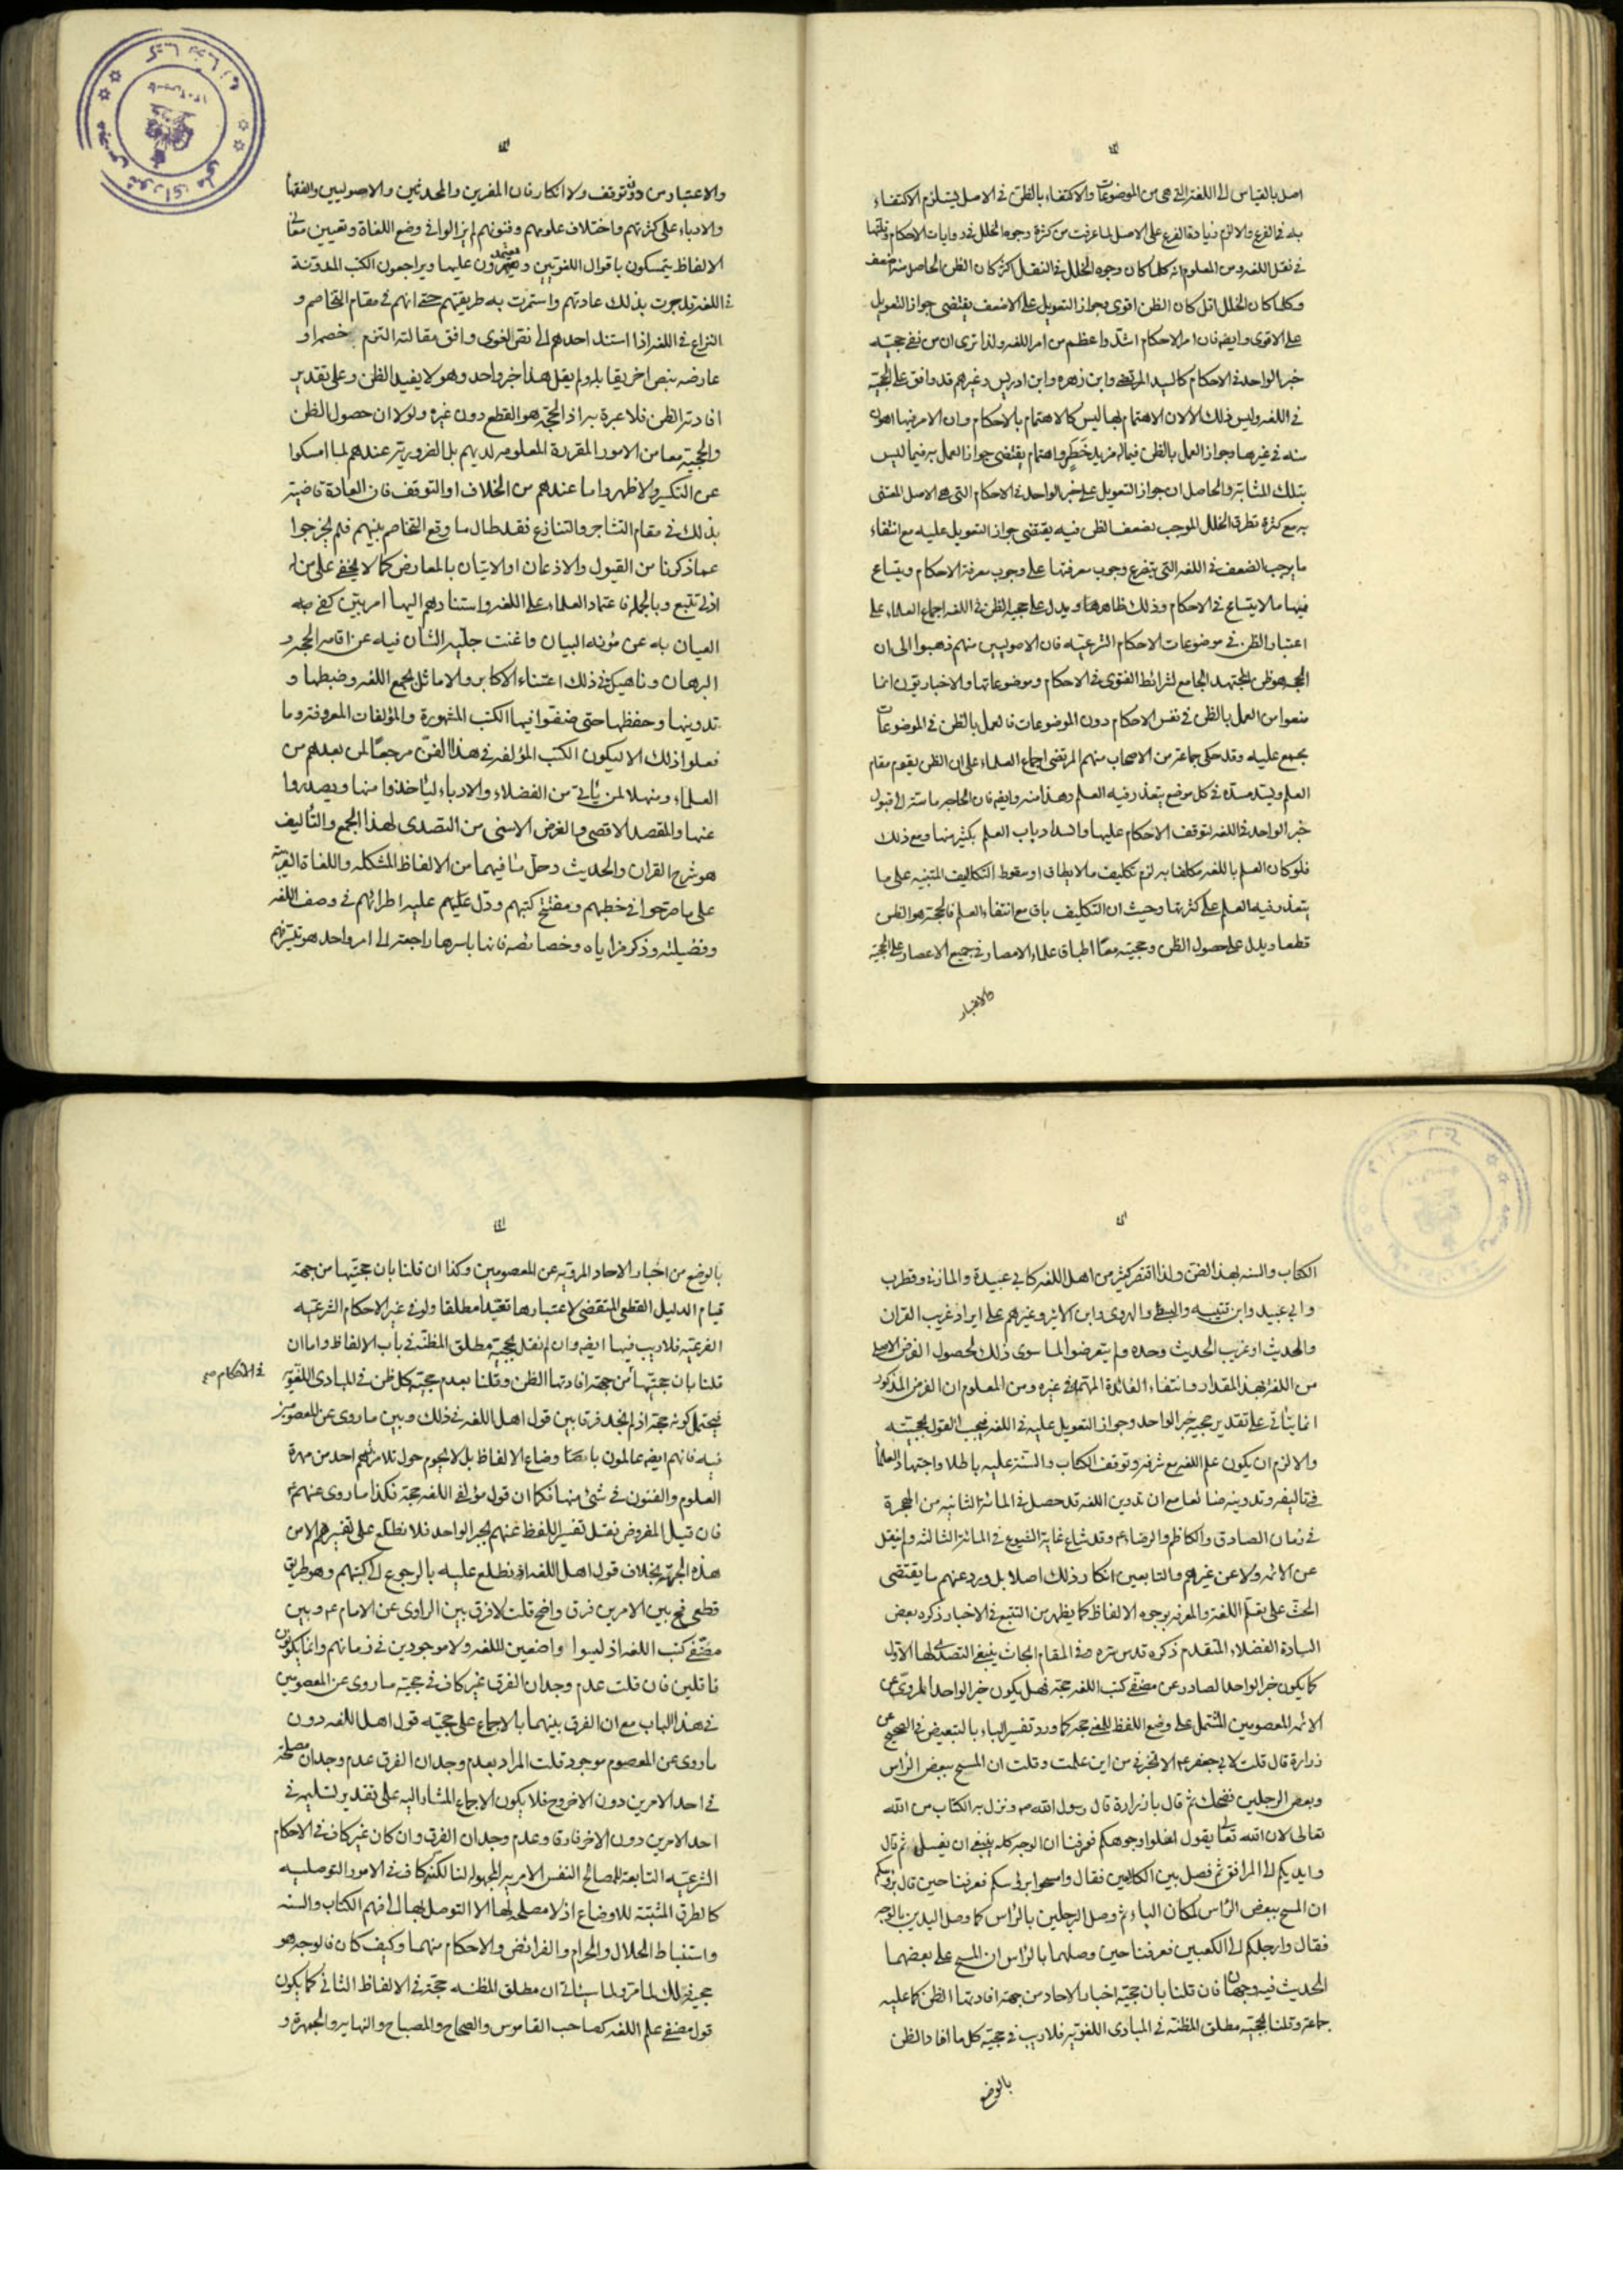 اصل بالقياس الى اللغة التي هي من الموضوعات والاكتفاء بالظن في الاصل يستلزم الاكتفاء
به في الفرع والا لزم زيادة الفرع على الاصل لما عرفت من كثرة وجوه الخلل في روايات الاحكام وقلتها
في نقل اللغة ومن المعلوم انه كلما كان وجوه الخلل في النقل اكثر كان الظن الحاصل منه اضعف
وكلما كان الخلل اقل كان الظن اقوى وجواز التعويل على الاضعف يقتضي جواز التعويل
على الاقوى وايضه فان امر الاحكام اشد واعظم من امر اللغة ولذا ترى ان من نفى حجية
خبر الواحد في الاحكام كالسيد المرتضى وابن زهره وابن ادريس وغيرهم قد وافق على الحجية
في اللغة وليس ذلك الا لان الاهتمام بها ليس كالاهتمام بالاحكام وان الامر فيها اهون
منه في غيرها وجواز العمل بالظن فيما له مزيد خطر واهتمام يقتضي جواز العمل به فيما ليس
بتلك المثابة والحاصل ان جواز التعويل على خبر الواحد في الاحكام التي هي الاصل المعتنى
به مع كثرة تطرق الخلل الموجب لضعف الظن فيه يقتضي جواز التعويل عليه مع انتفاء
ما يوجب الضعف في اللغة التي يتفرع وجوب معرفتها على وجوب معرفة الاحكام ويتساع
فيها ما لا يتساع في الاحكام وذلك ظاهر هذا ويدل على حجية الظن في اللغة اجماع العلماء على
اعتبار الظن في موضوعات الاحكام الشرعيه فان الاصوليين منهم ذهبوا الى ان
الحجه هو ظن المجتهد الجامع لشرائط الفتوى في الاحكام وموضوعاتها والاخباريون انما
منعوا من العمل بالظن في نفس الاحكام دون الموضوعات فالعمل بالظن في الموضوعات
مجمع عليه وقد حكى جماعة من الاصحاب منهم المرتضى اجماع العلماء على ان الظن يقوم مقام
العلم ويسد مسده في كل موضع يتعذر فيه العلم وهذا منه وايضه فان الحاجة ماسة الى قبول
خبر الواحد في اللغة لتوقف الاحكام عليها وانسداد باب العلم بكثير منها ومع ذلك
فلو كان العلم باللغة مكلفا به لزم تكليف ما لا يطاق او سقوط التكاليف المبتنيه على ما
يتعذر فيه العلم على كثرتها وحيث ان التكليف باق مع انتفاء العلم فالحجة هو الظن
قطعا ويدل على حصول الظن وحجيته معا اطباق علماء الامصار في جميع الاعصار على الحجية
والاعتبار
والاعتبار من دون توقف ولا انكار فان المفسرين والمحدثين والاصوليين والفقهأ
والادباء على كثرتهم واختلاف علومهم وفنونهم لم يزالوا في وضع اللغاة وتعيين معانى
الالفاظ يتمسكون باقوال اللغويين ويعتمدون عليها ويراجعون الكتب المدونة
في اللغة قد جرت بذلك عادتهم واستمرت به طريقتهم حتى انهم في مقام التخاصم و
النزاع في اللغة اذا استند احدهم الى نص لغوى وافق مقالته التزم خصمه او
عارضه بنص اخر يقابله ولم يقل هذا خبر واحد وهو لا يفيد الظن وعلى تقدير
افادته الظن فلا عبرة به اذ الحجة هو القطع دون غيره ولولا ان حصول الظن
والحجية معا من الامور المقررة المعلومة لديهم بل الضرورية عندهم لما امسكوا
عن النكير ولاظهروا ما عندهم من الخلاف او التوقف فان العادة قاضية
بذلك في مقام التشاجر والتنازع فقد طال ما وقع التخاصم بينهم فلم يخرجوا
عما ذكرنا من القبول والاذعان او الاتيان بالمعارض كما لا يخفى على من له
ادنى تتبع وبالجملة فاعتماد العلماء على اللغة واستنادهم اليها امر بين كفى فيه
العيان به عن مؤنة البيان واغنت جلية الشان فيه عن اقامة الحجة و
البرهان وناهيك في ذلك اعتناء الاكابر والاماثل بجمع اللغة وضبطها و
تدوينها وحفظها حتى صنفوا فيها الكتب المشهورة والمؤلفات المعروفة وما
فعلوا ذلك الا ليكون الكتب المؤلفة في هذا الفن مرجعا لمن بعدهم من
العلماء ومنهلا لمن يأتي من الفضلاء والادباء ليأخذوا منها ويصدروا
عنها والمقصد الاقصى والغرض الاسنى من التصدى لهذا الجمع والتأليف
هو شرح القران والحديث وحل ما فيهما من الالفاظ المشكله واللغاة الغريبة
على ما صرحوا في خطبهم ومفتتح كتبهم ودل عليهم عليه اطرائهم في وصف اللغه
وفضيلته وذكر مزاياه وخصائصه فانها باسرها راجعة الى امر واحد هو تيسر فهم
الكتاب والسنه بهذا الفن ولذا اقتصر كثير من اهل اللغه كابي عبيدة والمازنى وقطرب
وابي عبيد وابن قتيبه والهروى وابن الاثير وغيرهم على ايراد غريب القران
والحديث او غريب الحديث وحده ولم يتعرضوا لما سوى ذلك لحصول الغرض الاصلى
من اللغة بهذا المقدار وانتفاء الفائدة المهمة في غيره ومن المعلوم ان الغرض المذكور
انما يتأتى على تقدير حجية خبر الواحد وجواز التعويل عليه في اللغة فيجب القول بحجيته
والا لزم ان يكون علم اللغة مع شرفه وتوقف الكتاب والسنة عليه باطلا واجتهاد العلمأ
في تاليفه وتدوينه ضائعا مع ان تدوين اللغة قد حصل في المائة الثانيه من الهجرة
في زمان الصادق والكاظم والرضاء ع وقد شاع غاية الشيوع في المائة الثالثه ولم ينقل
عن الائمة ولا عن غيرهم والتابعين انكار ذلك اصلا بل ورد عنهم ما يقتضى
الحث على تعلم اللغة والمعرفه بوجوه الالفاظ كما يظهر من التتبع في الاخبار ذكره بعض
السادة الفضلاء المتقدم ذكره قدس سره وفي المقام ابحاث ينبغي التصدى لها الاول
كما يكون خبر الواحد الصادر عن مصنفى كتب اللغه حجة فهل يكون خبر الواحد المروى عن
الائمة المعصومين المشتمل على وضع اللفظ للمعنى حجه كما ورد تفسير الباء بالتبعيض في الصحيح عن
زرارة قال قلت لابي جعفر ع الا تخبرنى من اين علمت وقلت ان المسح ببعض الراس
وبعض الرجلين فضحك ثم قال يا زرارة قال رسول الله ص ونزل به الكتاب من الله
تعالى لان الله تعالى يقول اغسلوا وجوهكم فعرفنا ان الوجه كله ينبغى ان يغسل ثم قال
وايديكم الى المرافق ثم فصل بين الكلامين فقال وامسحوا برؤسكم فعرفنا حين قال برؤسكم
ان المسح ببعض الراس لمكان الباء ثم وصل الرجلين بالراس كما وصل اليدين بالوجه
فقال وارجلكم الى الكعبين فعرفنا حين وصلهما بالراس ان المسح على بعضهما
الحديث فيه وجهان فان قلنا بان حجية اخبار الاحاد من جهة افادتها الظن كما عليه
جماعة وقلنا بحجية مطلق المظنه في المبادى اللغوية فلا ريب في حجية كل ما افاد الظن
بالوضع
بالوضع من اخبار الاحاد المروية عن المعصومين وكذا ان قلنا بان حجيتها من جهة
قيام الدليل القطعى المقتضى لاعتبارها تعبدا مطلقا ولو في غير الاحكام الشرعيه
الفرعيه فلا ريب فيها ايضه وان لم نقل بحجية مطلق المظنه في باب الالفاظ واما ان
قلنا بان حجيتها من جهة افادتها الظن وقلنا بعدم حجية كل ظن في المبادى اللغوية
في الاحكام صح
فيحتمل كونه حجة اذ لم نجد فرقا بين قول اهل اللغة في ذلك وبين ما روى عن المعصومين
فيه فانهم ايضه عالمون باوضاع الالفاظ بل لا يحوم حول تلامذتهم احد من مهرة
العلوم والفنون في شئ منها فكما ان قول مؤلفى اللغة حجة فكذا ما روى عنهم ع
فان قيل المفروض نقل تفسير اللفظ عنهم بخبر الواحد فلا نطلع على تفسيرهم الا من
هذه الجهة بخلاف قول اهل اللغه اذ نطلع عليه بالرجوع الى كتبهم وهو طريق
قطعى فبين الامرين فرق واضح قلت لا فرق بين الراوى عن الامام ع وبين
مصنفى كتب اللغه اذ ليسوا واضعين للغه ولا موجودين في زمانهم وانما يكونون
ناقلين فان قلت عدم وجدان الفرق غير كاف في حجية ما روى عن المعصومين
في هذا الباب مع ان الفرق بينهما بالاجماع على حجيه قول اهل اللغه دون
ما روى عن المعصوم موجود قلت المراد بعدم وجدان الفرق عدم وجدان مصلحة
في احد الامرين دون الاخر وح فلا يكون الاجماع المشار اليه على تقدير تسليمه في
احد الامرين دون الاخر فارقا وعدم وجدان الفرق وان كان غير كاف في الاحكام
الشرعيه التابعة للمصالح النفس الامرية المجهولة لنا لكنه كاف في الامور التوصليه
كالطرق المثبتة للاوضاع اذ لا مصلحة لها الا التوصل بها الى فهم الكتاب والسنه
واستنباط الحلال والحرام والفرائض والاحكام منهما وكيف كان فالوجه هو
حجية ذلك لما مر ولما سيأتى ان مطلق المظنه حجة في الالفاظ الثانى كما يكون
قول مصنفى علم اللغه كصاحب القاموس والصحاح والمصباح والنهاية والجمهرة و